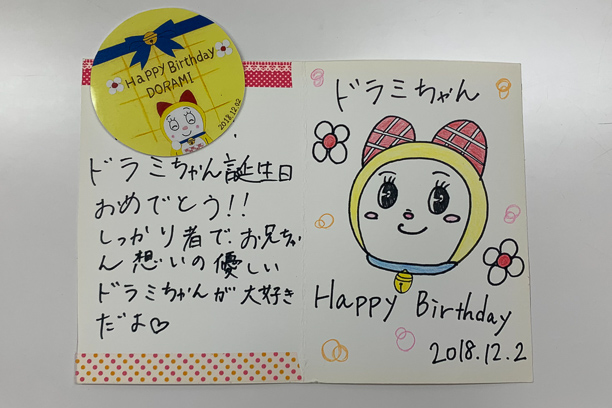 Happy Birthday
DORAMI
2018.12.02
ドラミちゃん誕生日
おめでとう!!
しっかり者で、お兄ちゃ
ん想いの優しい
ドラミちゃんが大好き
だよ♡
ドラミちゃん
Happy Birthday
2018.12.2